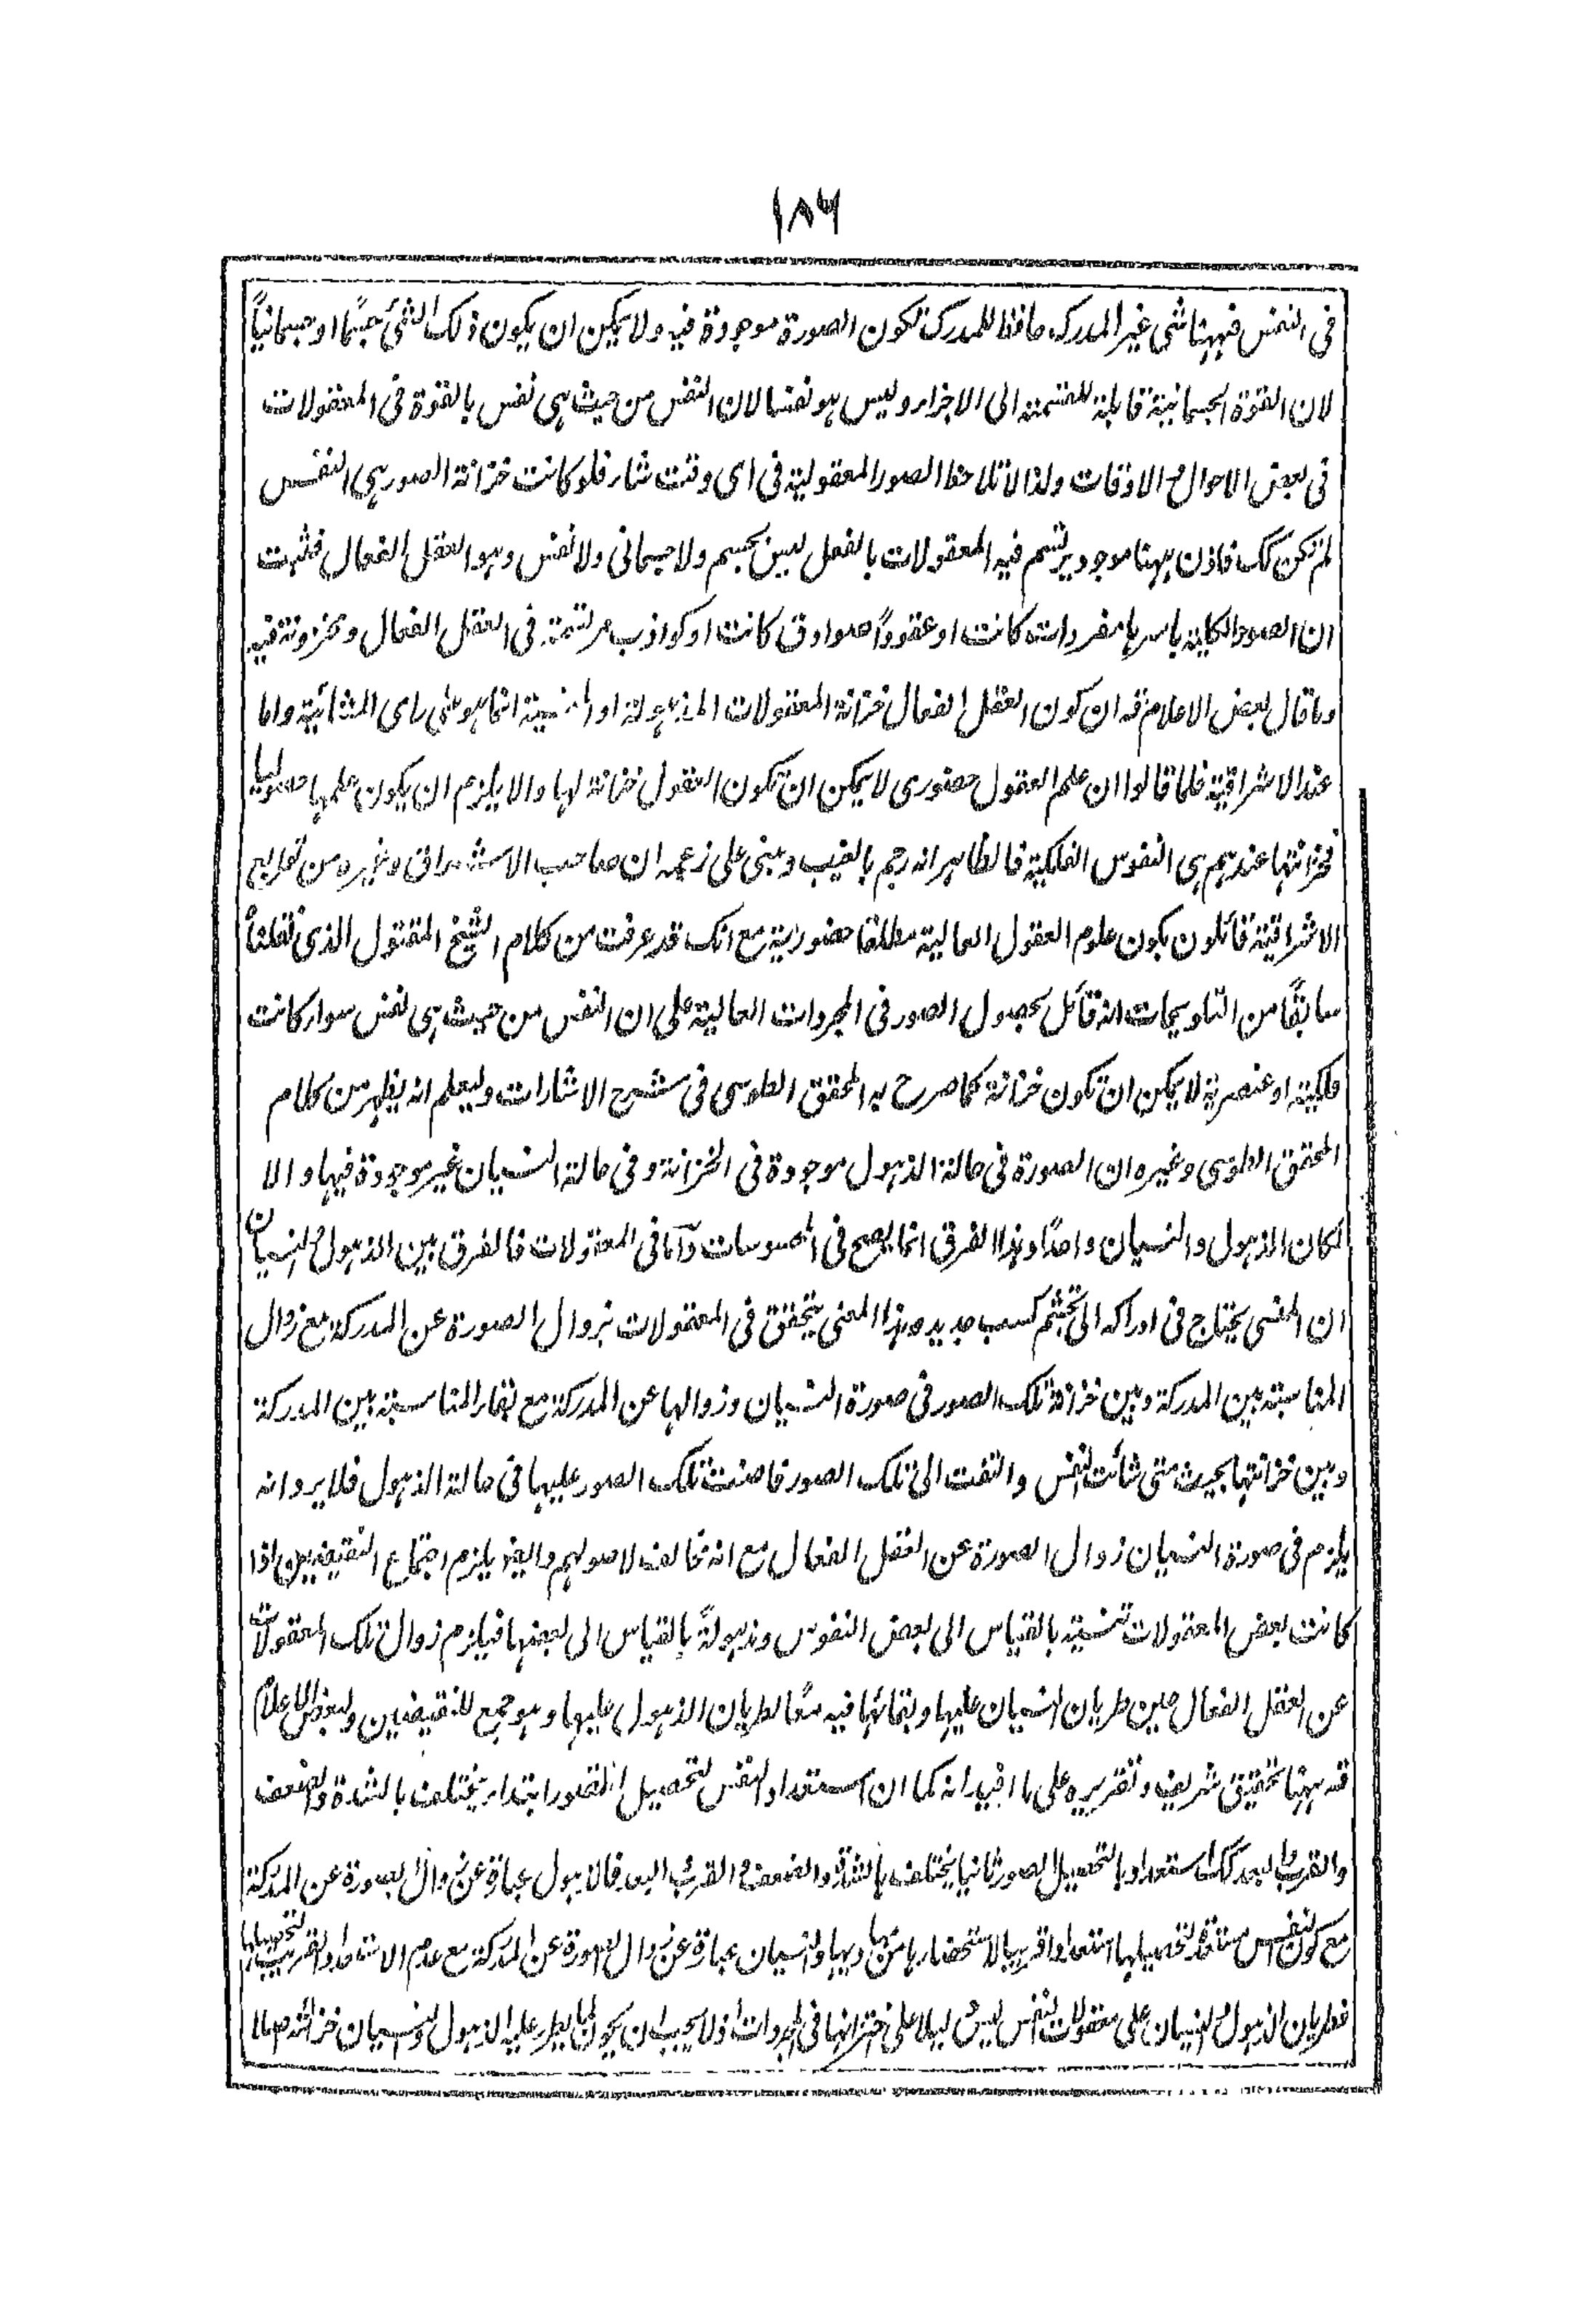 ١٨٦
فى النفس فههنا شى غير المدرك حافظا للمدرك تكون الصورة موجودة فيه ولا يمكن ان يكون ذلك الشئ جسمًا او جسمانيًا
لان القوة الجسمانية قابلة للقسمة الى الاجزاء وليس هو نفسا لان النفس من حيث هى نفس بالقوة فى المعقولات
فى بعض الاحوال والاوقات ولذا لا تلاحظ الصور المعقولية فى اى وقت شاء فلو كانت خزانة الصور هى النفس
لم تكن كك فاذن ههنا موجود يرتسم فيه المعقولات بالفعل ليس بجسم ولا جسمانى ولا نفس وهو العقل الفعال فثبت
ان الصور الكلية باسرها مفردات كانت او عقودًا صوادق كانت او كواذب مرتسمة فى العقل الفعال ومخزونة فيه
وما قال بعض الاعلام قه ان كون العقل الفعال خزانة المعقولات المذهولة او المنسية انما هو على راى المشائية واما
عند الاشراقية فلما قالوا ان علم العقول حضورى لا يمكن ان تكون العقول خزانة لها والا يلزم ان يكون علمها حصوليا
فخزانتها عندهم هى النفوس الفلكية فالظاهر انه رجم بالغيب ومبنى على زعمه ان صاحب الاشراق وغيره من توابع
الاشراقية قائلون بكون علوم العقول العالية مطلقا حضورية مع انك قد عرفت من كلام الشيخ المقتول الذى نقلناه
سابقًا من التلويحات انه قائل بحصول الصور فى المجردات العالية على ان النفس من حيث هى نفس سواء كانت
فلكية او عنصرية لا يمكن ان تكون خزانة كما صرح به المحقق الطوسى فى شرح الاشارات وليعلم انه يظهر من كلام
المحقق الطوسى وغيره ان الصورة فى حالة الذهول موجودة فى الخزانة وفى حالة النسيان غير موجودة فيها والا
لكان الذهول والنسيان واحدًا وهذا الفرق انما يصح فى المحسوسات وآما فى المعقولات فالفرق بين الذهول والنسيان
ان المنسى يحتاج فى ادراكه الى تجشم كسب جديد وهذا المعنى يتحقق فى المعقولات بزوال الصورة عن المدركة مع زوال
المناسبة بين المدركة وبين خزانة تلك الصور فى صورة النسيان وزوالها عن المدركة مع بقاء المناسبة بين المدركة
وبين خزانتها بحيث متى شائت النفس والتفت الى تلك الصور فاضت تلك الصور عليها فى حالة الذهول فلا يرد انه
يلزم فى صورة النسيان زوال الصورة عن العقل الفعال مع انه مخالف لاصولهم وايضًا يلزم اجتماع النقيضين اذا
كانت بعض المعقولات منسية بالقياس الى بعض النفوس ومذهولةً بالقياس الى بعضها فيلزم زوال تلك المعقولات
عن العقل الفعال حين طريان النسيان عليها وبقائها فيه معًا لطريان الذهول عليها وهو جمع للنقيضين ولبعض الاعلام
قه ههنا تحقيق شريف وتقريره على ما افيد انه كما ان استعداد النفس لتحصيل الصور ابتداء يختلف بالشدة والضعف
والقرب والبعد كك استعدادها لتحصيل الصور ثانيا يختلف بالشدة والضعف والقرب والبعد فالذهول عبارة عن زوال الصورة عن المدركة
مع كون النفس مستعدة لتحصيلها استعدادا قريبا لاستحضارها وبها والنسيان عبارة عن زوال الصورة عن المدركة مع عدم الاستعداد القريب لتحصيلها
فطريان الذهول والنسيان على معقولات النفس ليس دليلا على اختزانها فى المجردات اذ لا يجب ان يكون لما يطرء عليه الذهول والنسيان خزانة اصلا